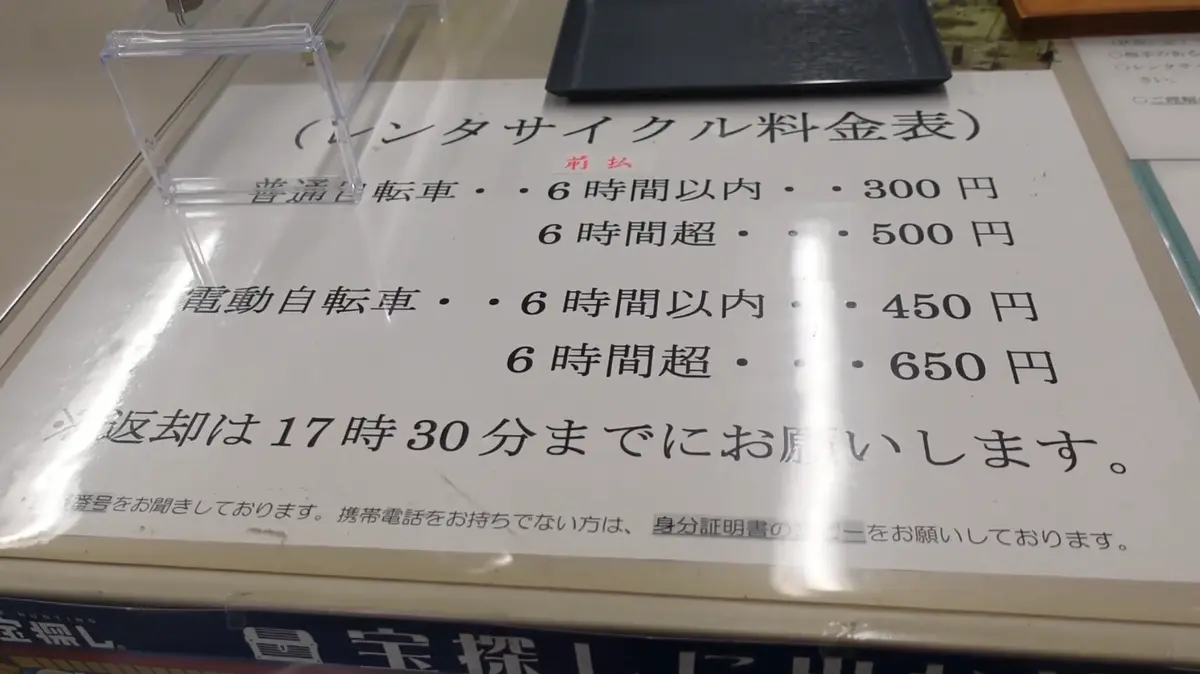 （レンタサイクル料金表）
前払
普通自転車・・6時間以内・・300円
6時間超・・・500円
電動自転車・・6時間以内・・450円
6時間超・・・650円
※返却は17時30分までにお願いします。
番号をお聞きしております。携帯電話をお持ちでない方は、身分証明書のコピーをお願いしております。
宝探し
宝探しに出